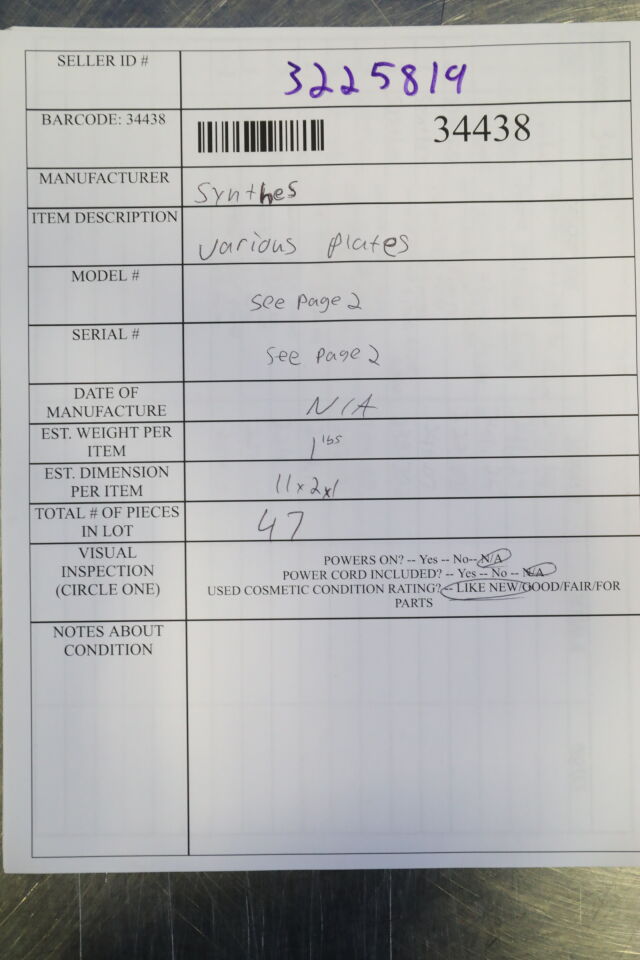 SELLER ID #
3225819
BARCODE: 34438
34438
MANUFACTURER
Synthes
ITEM DESCRIPTION
various plates
MODEL #
See page 2
SERIAL #
See page 2
DATE OF
MANUFACTURE
N/A
EST. WEIGHT PER
ITEM
1 lbs
EST. DIMENSION
PER ITEM
11x2x1
TOTAL # OF PIECES
IN LOT
47
VISUAL
INSPECTION
(CIRCLE ONE)
POWERS ON? -- Yes -- No-- N/A
POWER CORD INCLUDED? -- Yes -- No -- N/A
USED COSMETIC CONDITION RATING? -- LIKE NEW/GOOD/FAIR/FOR
PARTS
NOTES ABOUT
CONDITION